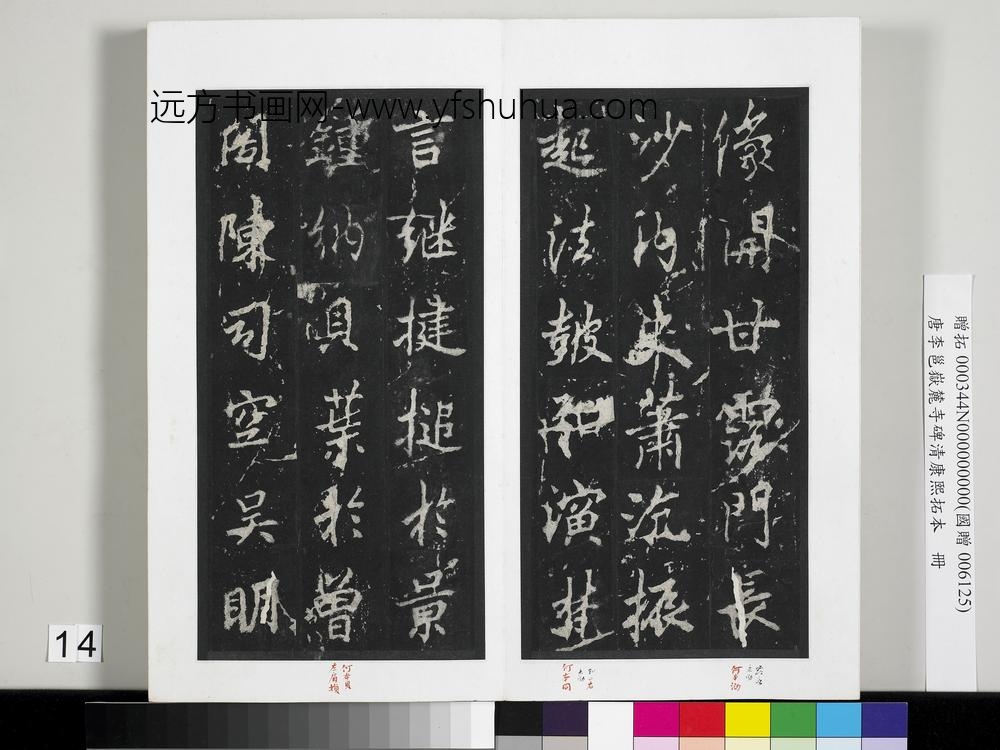 远方书画网-www.yfshuhua.com
像開甘露門長
沙内史蕭沆振
起法皷弘演梵
言継揵搥於景
鍾納貝葉於曾
閣陳司空吴明
贈拓 000344N000000000(國贈 006125)
唐李邕嶽麓寺碑清康熙拓本 冊
14